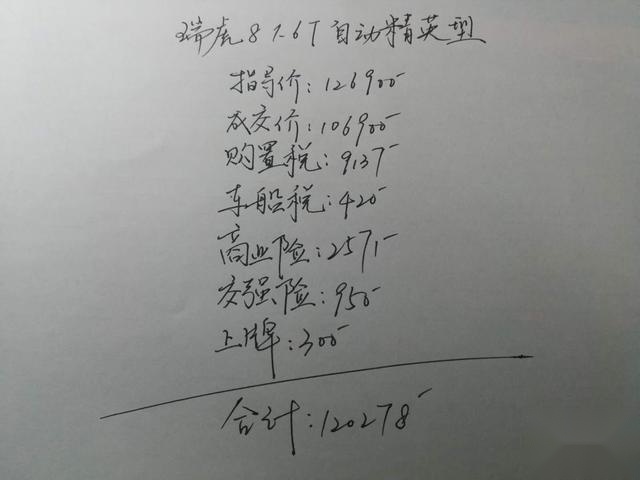 瑞虎8 1.6T自动精英型
指导价:126900-
成交价:106900-
购置税:9137-
车船税:420-
商业险:2571-
交强险:950-
上牌:300-
合计:120278-